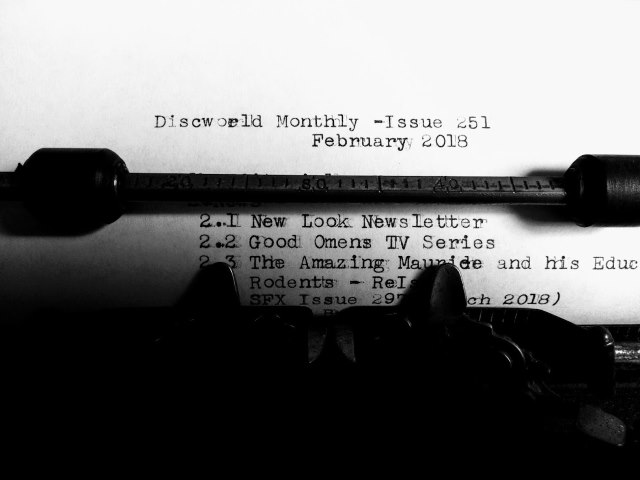 Discworld Monthly -Issue 251
February 2018
20 30 40
2.1 New Look Newsletter
2.2 Good Omens TV Series
2.3 The Amazing Maurice and his Educ
Rodents - ReIs
SFX Issue 297 ch 2018)